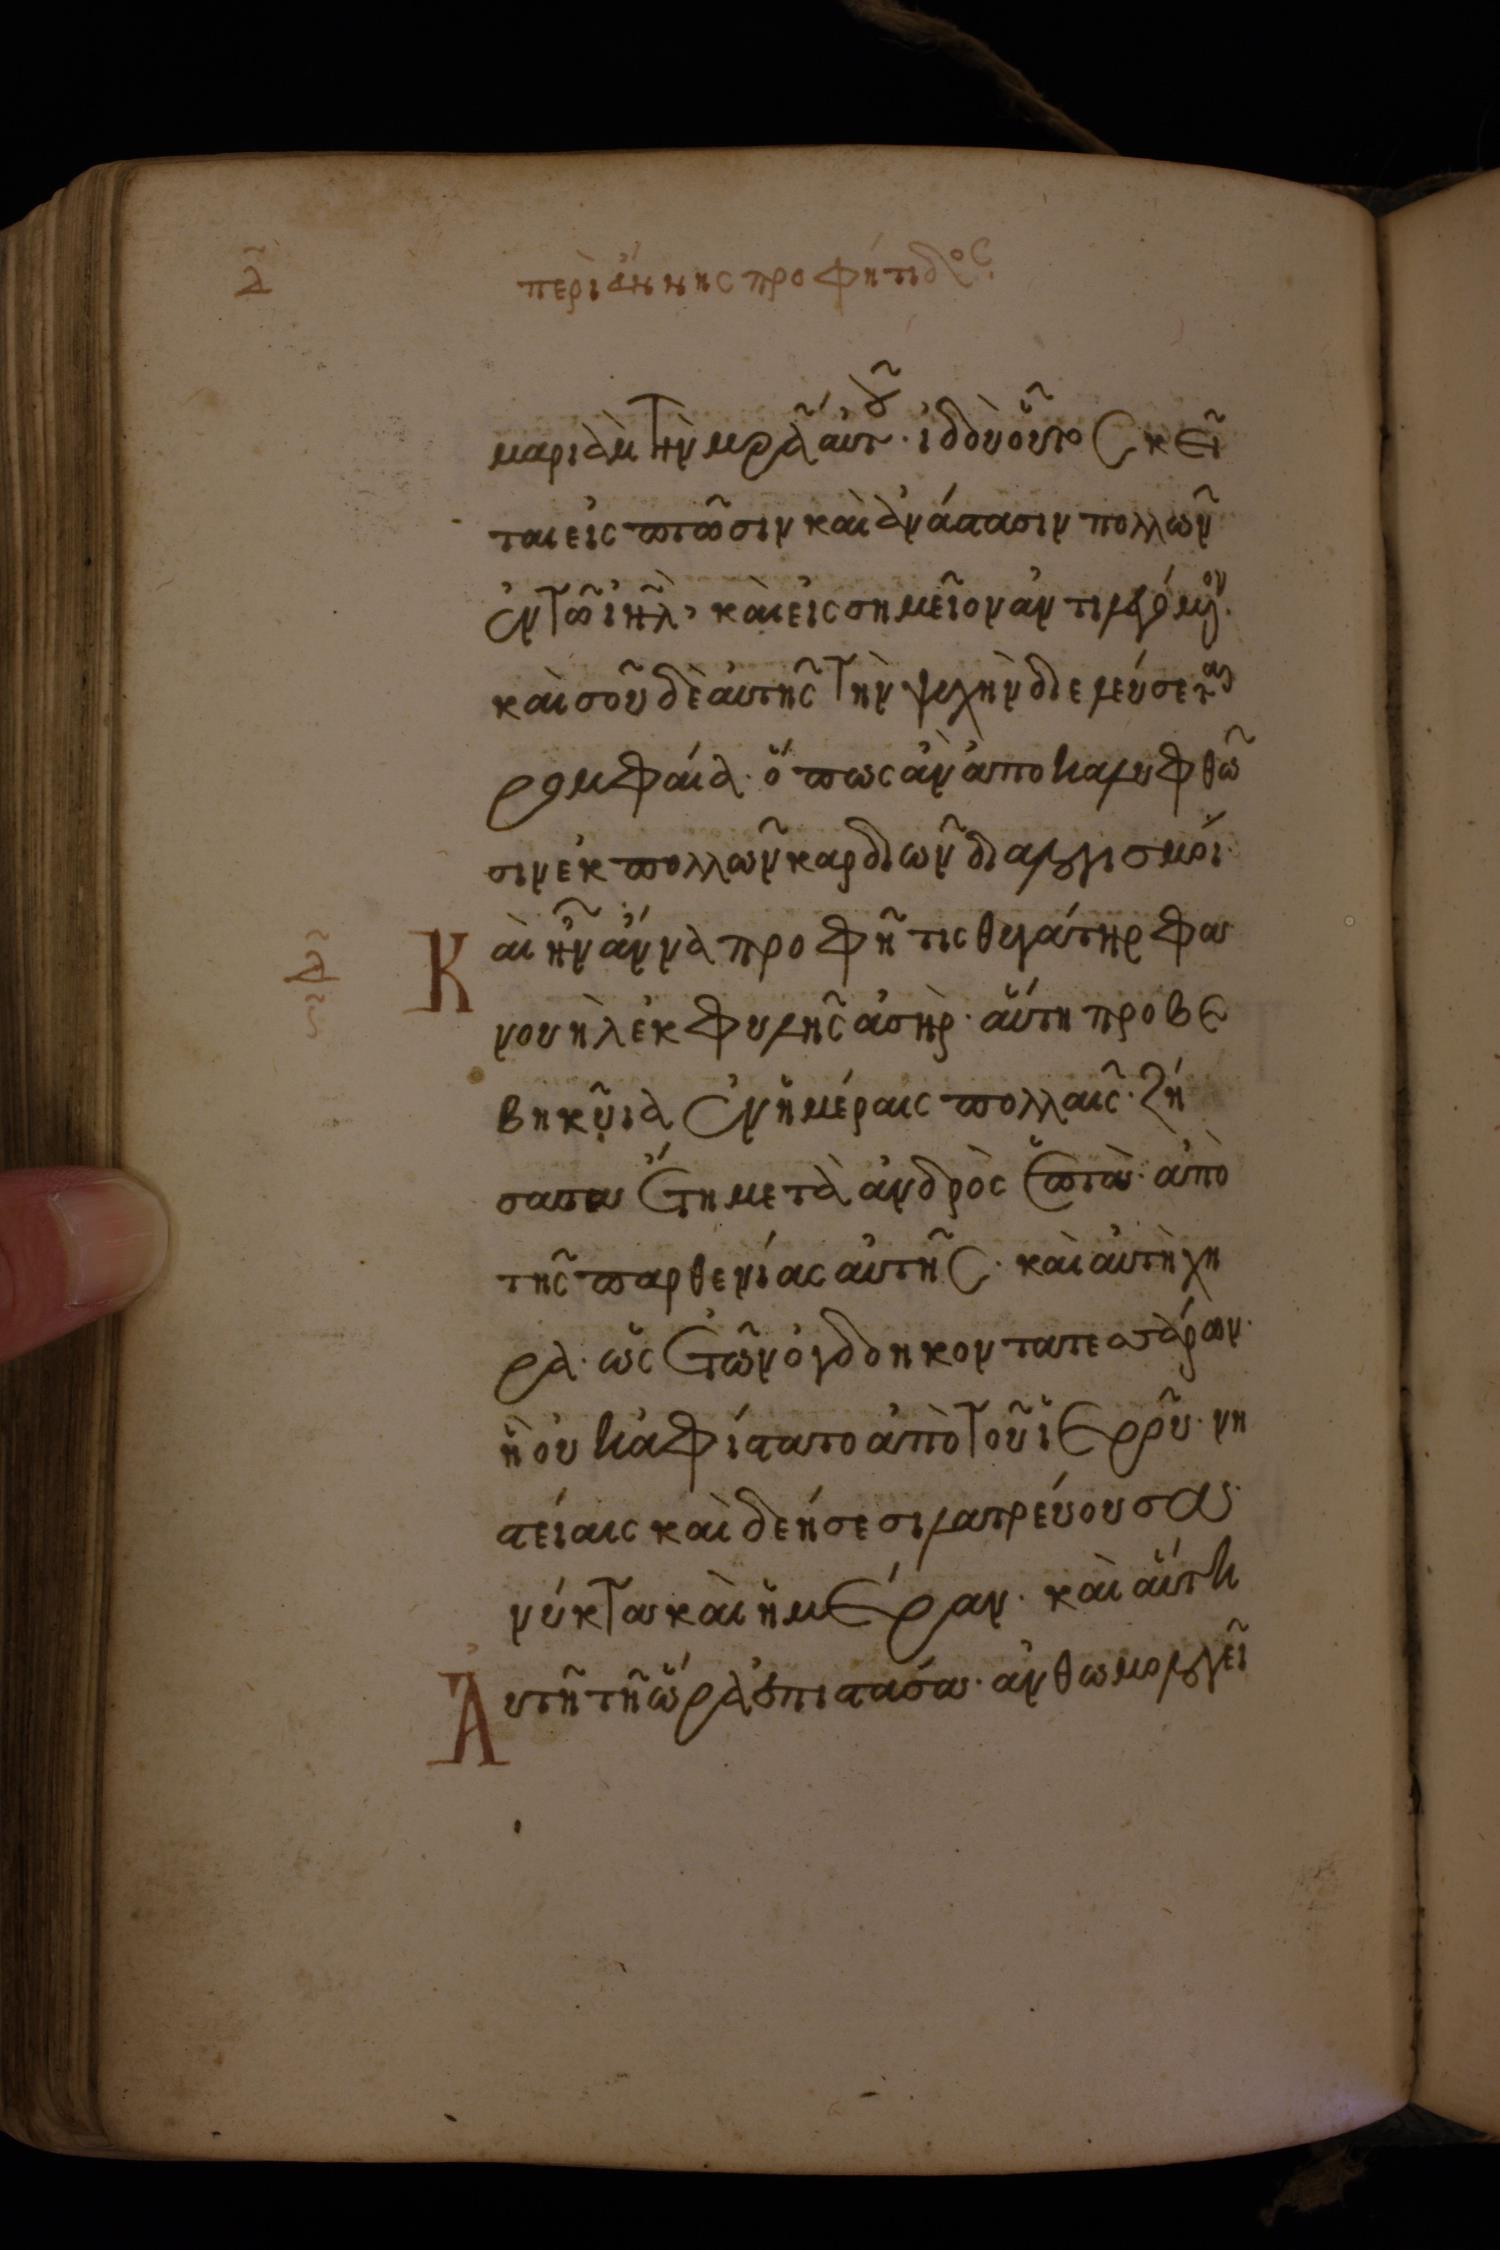 δ̄ περὶ ἄννης προφήτιδος
μαριὰμ τὴν μρ̄α αὐτοῦ· ἰδοὺ οὗτος κεῖ
ται εἰς πτῶσιν καὶ ἀνάστασιν πολλῶν
ἐν τῶ ιη̄λ, καὶ εἰς σημεῖον ἀντιλεγόμενον·
καὶ σοῦ δὲ αὐτῆς τὴν ψυχὴν διελεύσεται
ρομφαία· ὅπως ἂν ἀποκαλυφθῶ
σιν ἐκ πολλῶν καρδιῶν διαλογισμοί·
Καὶ ἦν ἄννα προφῆτις θυγάτηρ φα
νουὴλ ἐκ φυλῆς ἀσήρ· αὕτη προβε
βηκῦια ἐν ἡμέραις πολλαῖς· ζή
σασα ἔτη μετὰ ἀνδρὸς ἑπτὰ· ἀπὸ
τῆς παρθενίας αὐτῆς· καὶ αὐτὴ χή
ρα· ὡς ἐτῶν ὀγδοηκοντατεσσάρων·
ἣ οὐκ ἀφίστατο ἀπὸ τοῦ ἱεροῦ· νη
στείαις καὶ δεήσεσι λατρεύουσα·
νύκτα καὶ ἡμέραν· καὶ αὕτη
Αὐτῆ τῆ ὥρα ἐπιστᾶσα· ἀνθωμολογεῖ